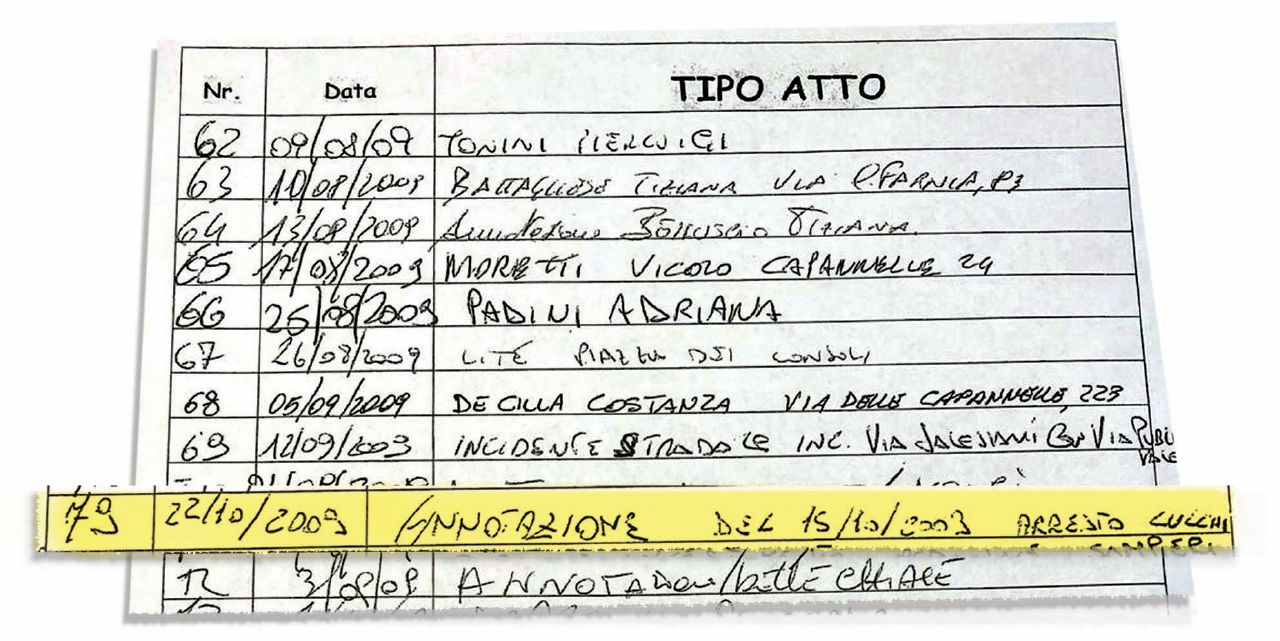 Nr. Data TIPO ATTO
62 09/08/09 TONINI PIERLUIGI
63 10/08/2009 BATTAGLIOSO TIZIANA VIA
64 13/08/2009 TIZIANA
65 17/08/2009 MORETTI VICOLO CAPANNELLE 24
66 25/08/2009 PADINI ADRIANA
67 26/08/2009 LITE PIAZZA DEI CONSOLI
68 05/09/2009 DE CILLA COSTANZA VIA DELLE CAPANNELLE, 223
69 12/09/2009 INCIDENTE STRADALE INC. VIA SALESIANI CON VIA
79 22/10/2009 ANNOTAZIONE DEL 15/10/2009 ARRESTO CUCCHI
ANNOTAZIONE